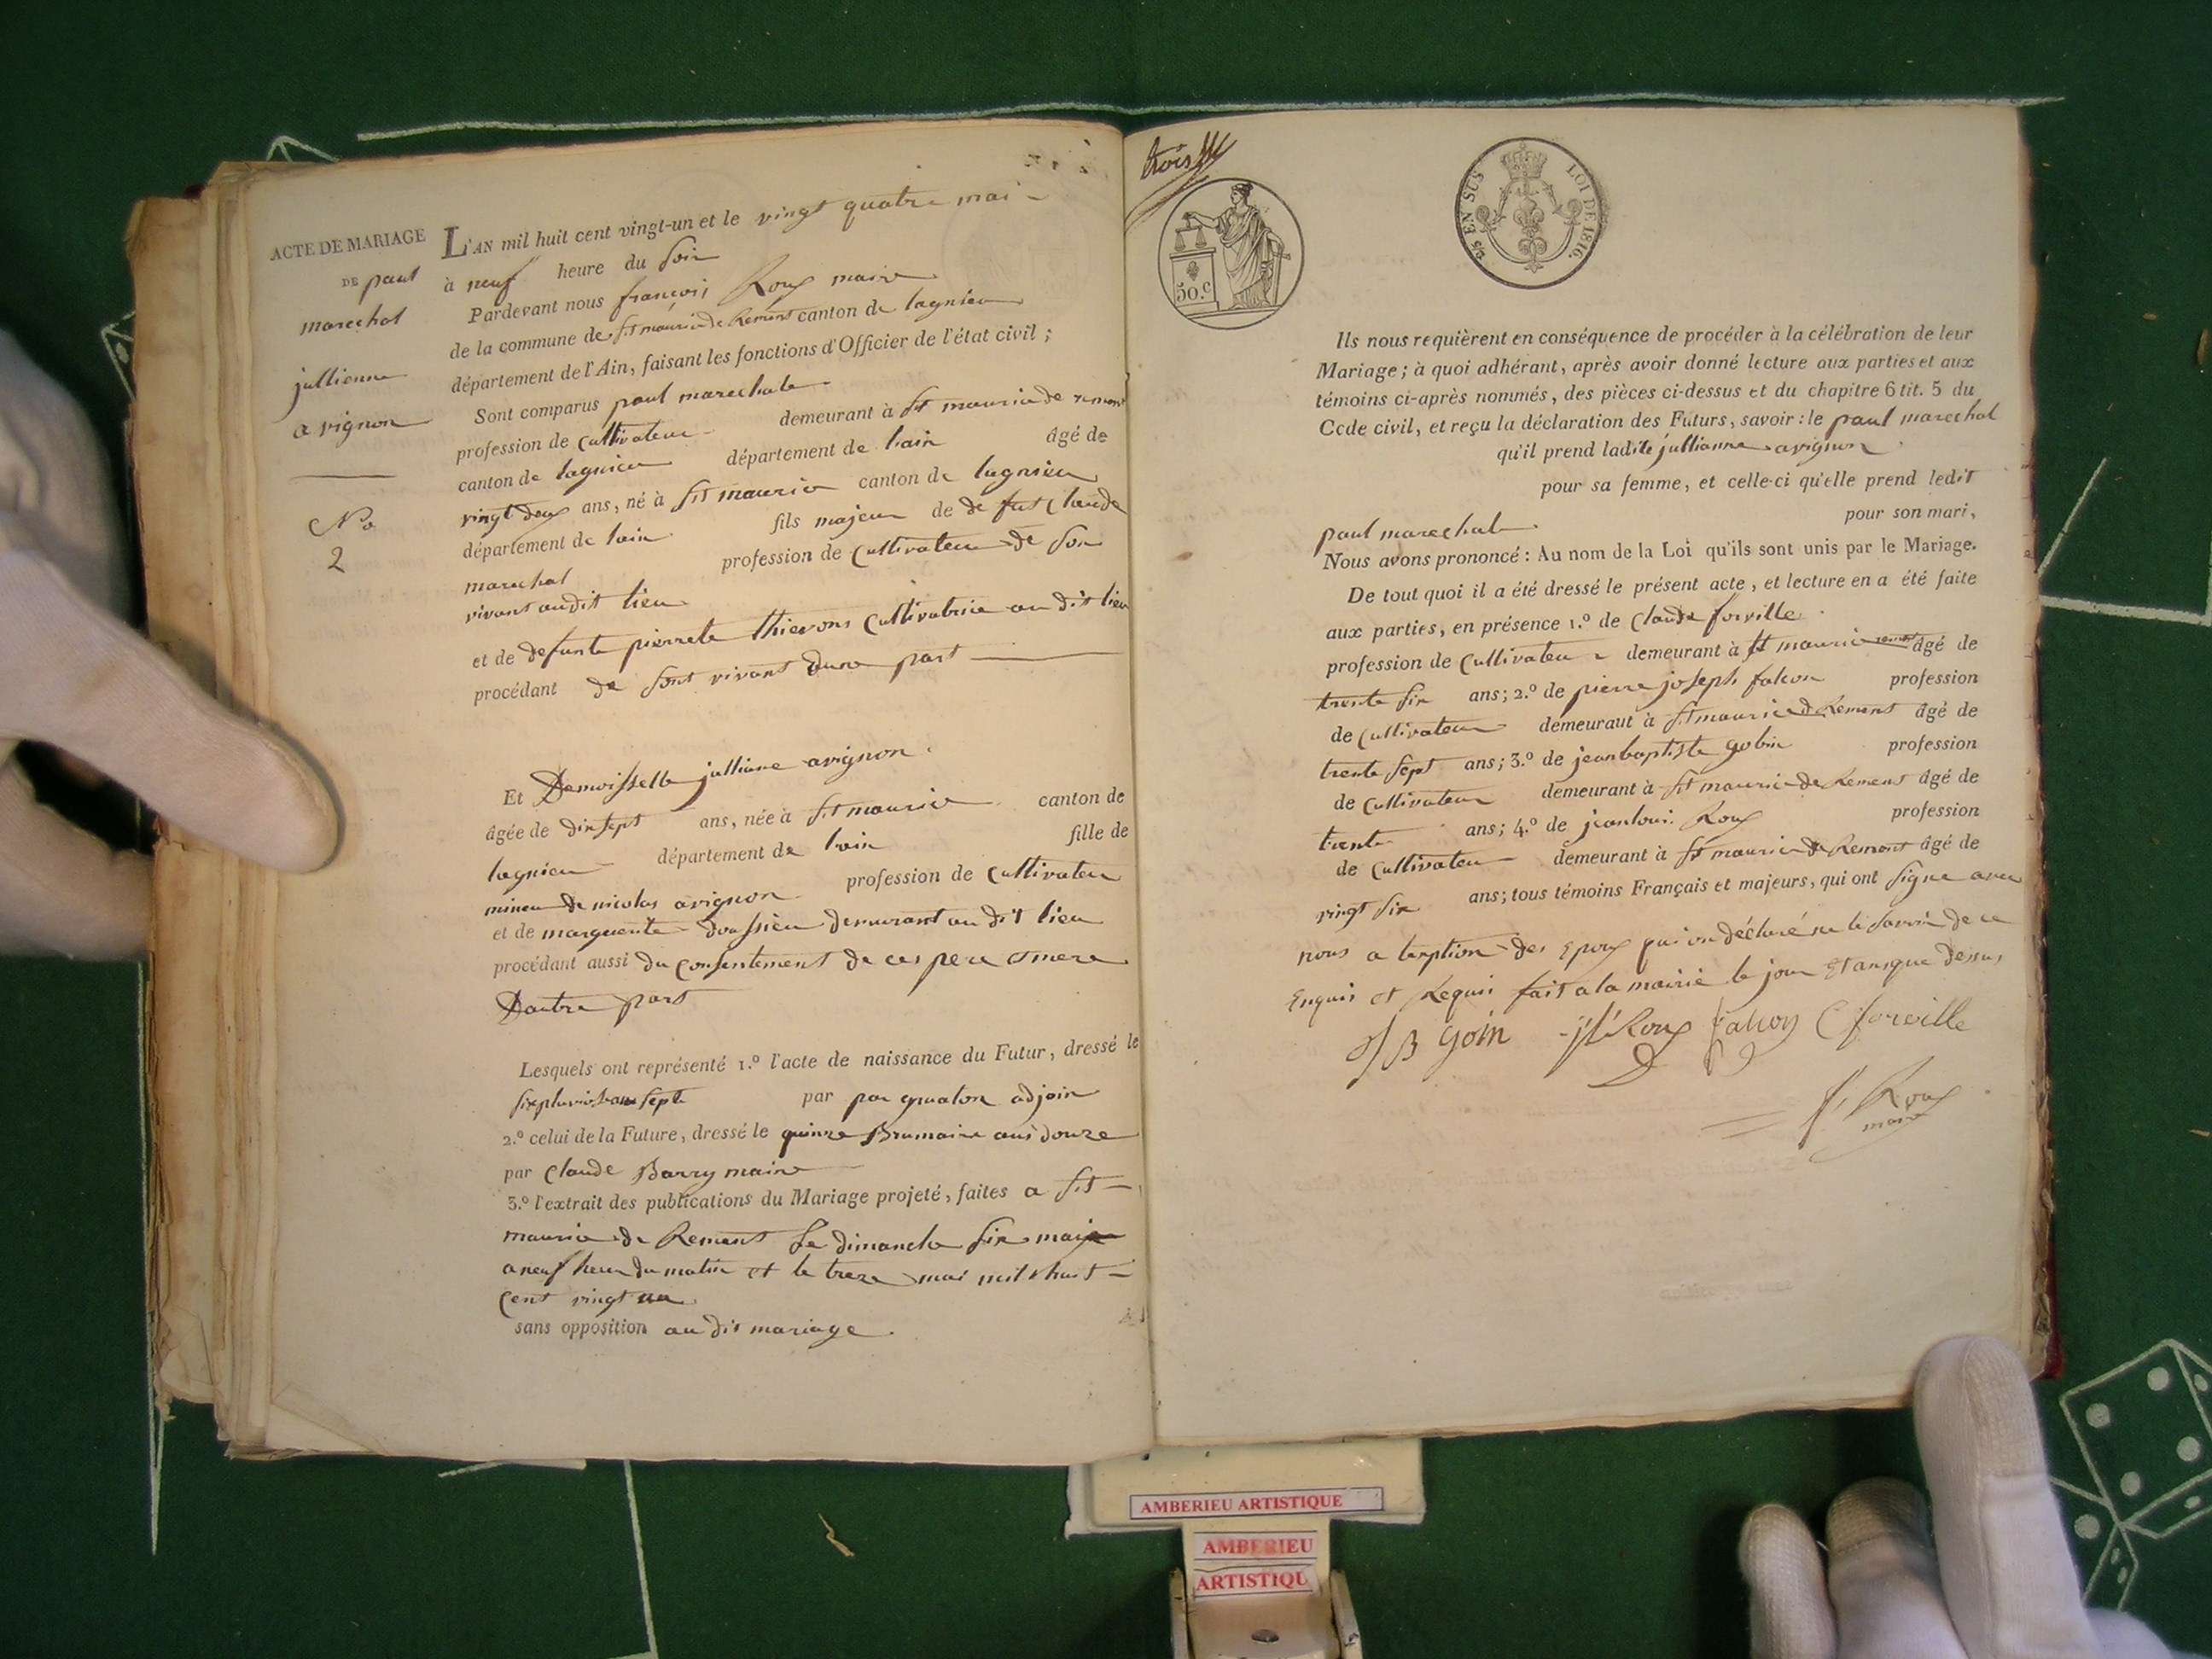 ACTE DE MARIAGE
DE paul
marechal
jullienne
avignon
No
2
L'AN mil huit cent vingt-un et le vingt quatre mai
à neuf heure du soir
Pardevant nous françois Roux maire
de la commune de st maurice de Remens canton de lagnieu
département de l'Ain, faisant les fonctions d'Officier de l'état civil ;
Sont comparus paul marechale
profession de Cultivateur demeurant à st maurice de remens
canton de lagnieu département de lain âgé de
vingt deux ans, né à st maurice canton de lagnieu
département de lain fils majeur de de fut Claude
marechal profession de Cultivateur de son
vivant audit lieu
et de defunte pierrete thievons Cultivatrice au dit lieu
procédant de sont vivant dune part
Et Demoisselle julliane avignon
âgée de dix sept ans, née à st maurice canton de
lagnieu département de lain fille de
mineu de nicolas avignon profession de Cultivateu
et de marguerite doussieu demurant au dit lieu
procédant aussi du consentement de ces pere et mere
Dautre part
Lesquels ont représenté 1.º l'acte de naissance du Futur, dressé le
six pluviose an sept par par adjoin
2.º celui de la Future, dressé le quinze Brumaire ans douze
par Claude Barry maire
3.º l'extrait des publications du Mariage projeté, faites a st
maurice de Remens Le dimanche six mai
a neuf heur du matin et le treze mai mil huit
Cent vingt un
sans opposition au dit mariage.
trois
50.c
25 EN SUS
LOI DE 1816.
Ils nous requièrent en conséquence de procéder à la célébration de leur
Mariage ; à quoi adhérant, après avoir donné lecture aux parties et aux
témoins ci-après nommés, des pièces ci-dessus et du chapitre 6 tit. 5 du
Code civil, et reçu la déclaration des Futurs, savoir : le paul marechal
qu'il prend ladite jullianne avignon
pour sa femme, et celle-ci qu'elle prend ledit
paul marechale pour son mari,
Nous avons prononcé : Au nom de la Loi qu'ils sont unis par le Mariage.
De tout quoi il a été dressé le présent acte, et lecture en a été faite
aux parties, en présence 1.º de Claude forville
profession de Cultivateur demeurant à st maurice remens âgé de
trente six ans ; 2.º de pierre joseph falcon profession
de Cultivateur demeuraut à st maurice de Remens âgé de
trente sept ans ; 3.º de jean baptiste gobin profession
de Cultivateur demeurant à st maurice de Remens âgé de
trente ans ; 4.º de jean loui Roux profession
de Cultivateu demeurant à st maurice de Remens âgé de
vingt six ans ; tous témoins Français et majeurs, qui ont signe avec
nous a lexption des Epoux qui on déclaré ne le savoir de ce
Enquis et Requis fait a la mairie le jour et an que dessus
J B goin Roux falcon C forville
f Roux
maire
AMBERIEU ARTISTIQUE
AMBERIEU
ARTISTIQU